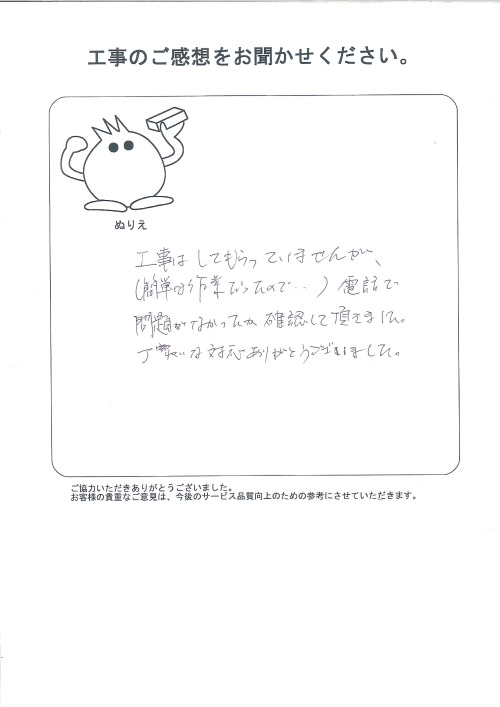 工事のご感想をお聞かせください。
ぬりえ
工事はしてもらっていませんが、
(簡単な作業だったので‥) 電話で
問題がなかったか確認して頂きました。
丁寧な対応ありがとうございました。
ご協力いただきありがとうございました。
お客様の貴重なご意見は、今後のサービス品質向上のための参考にさせていただきます。